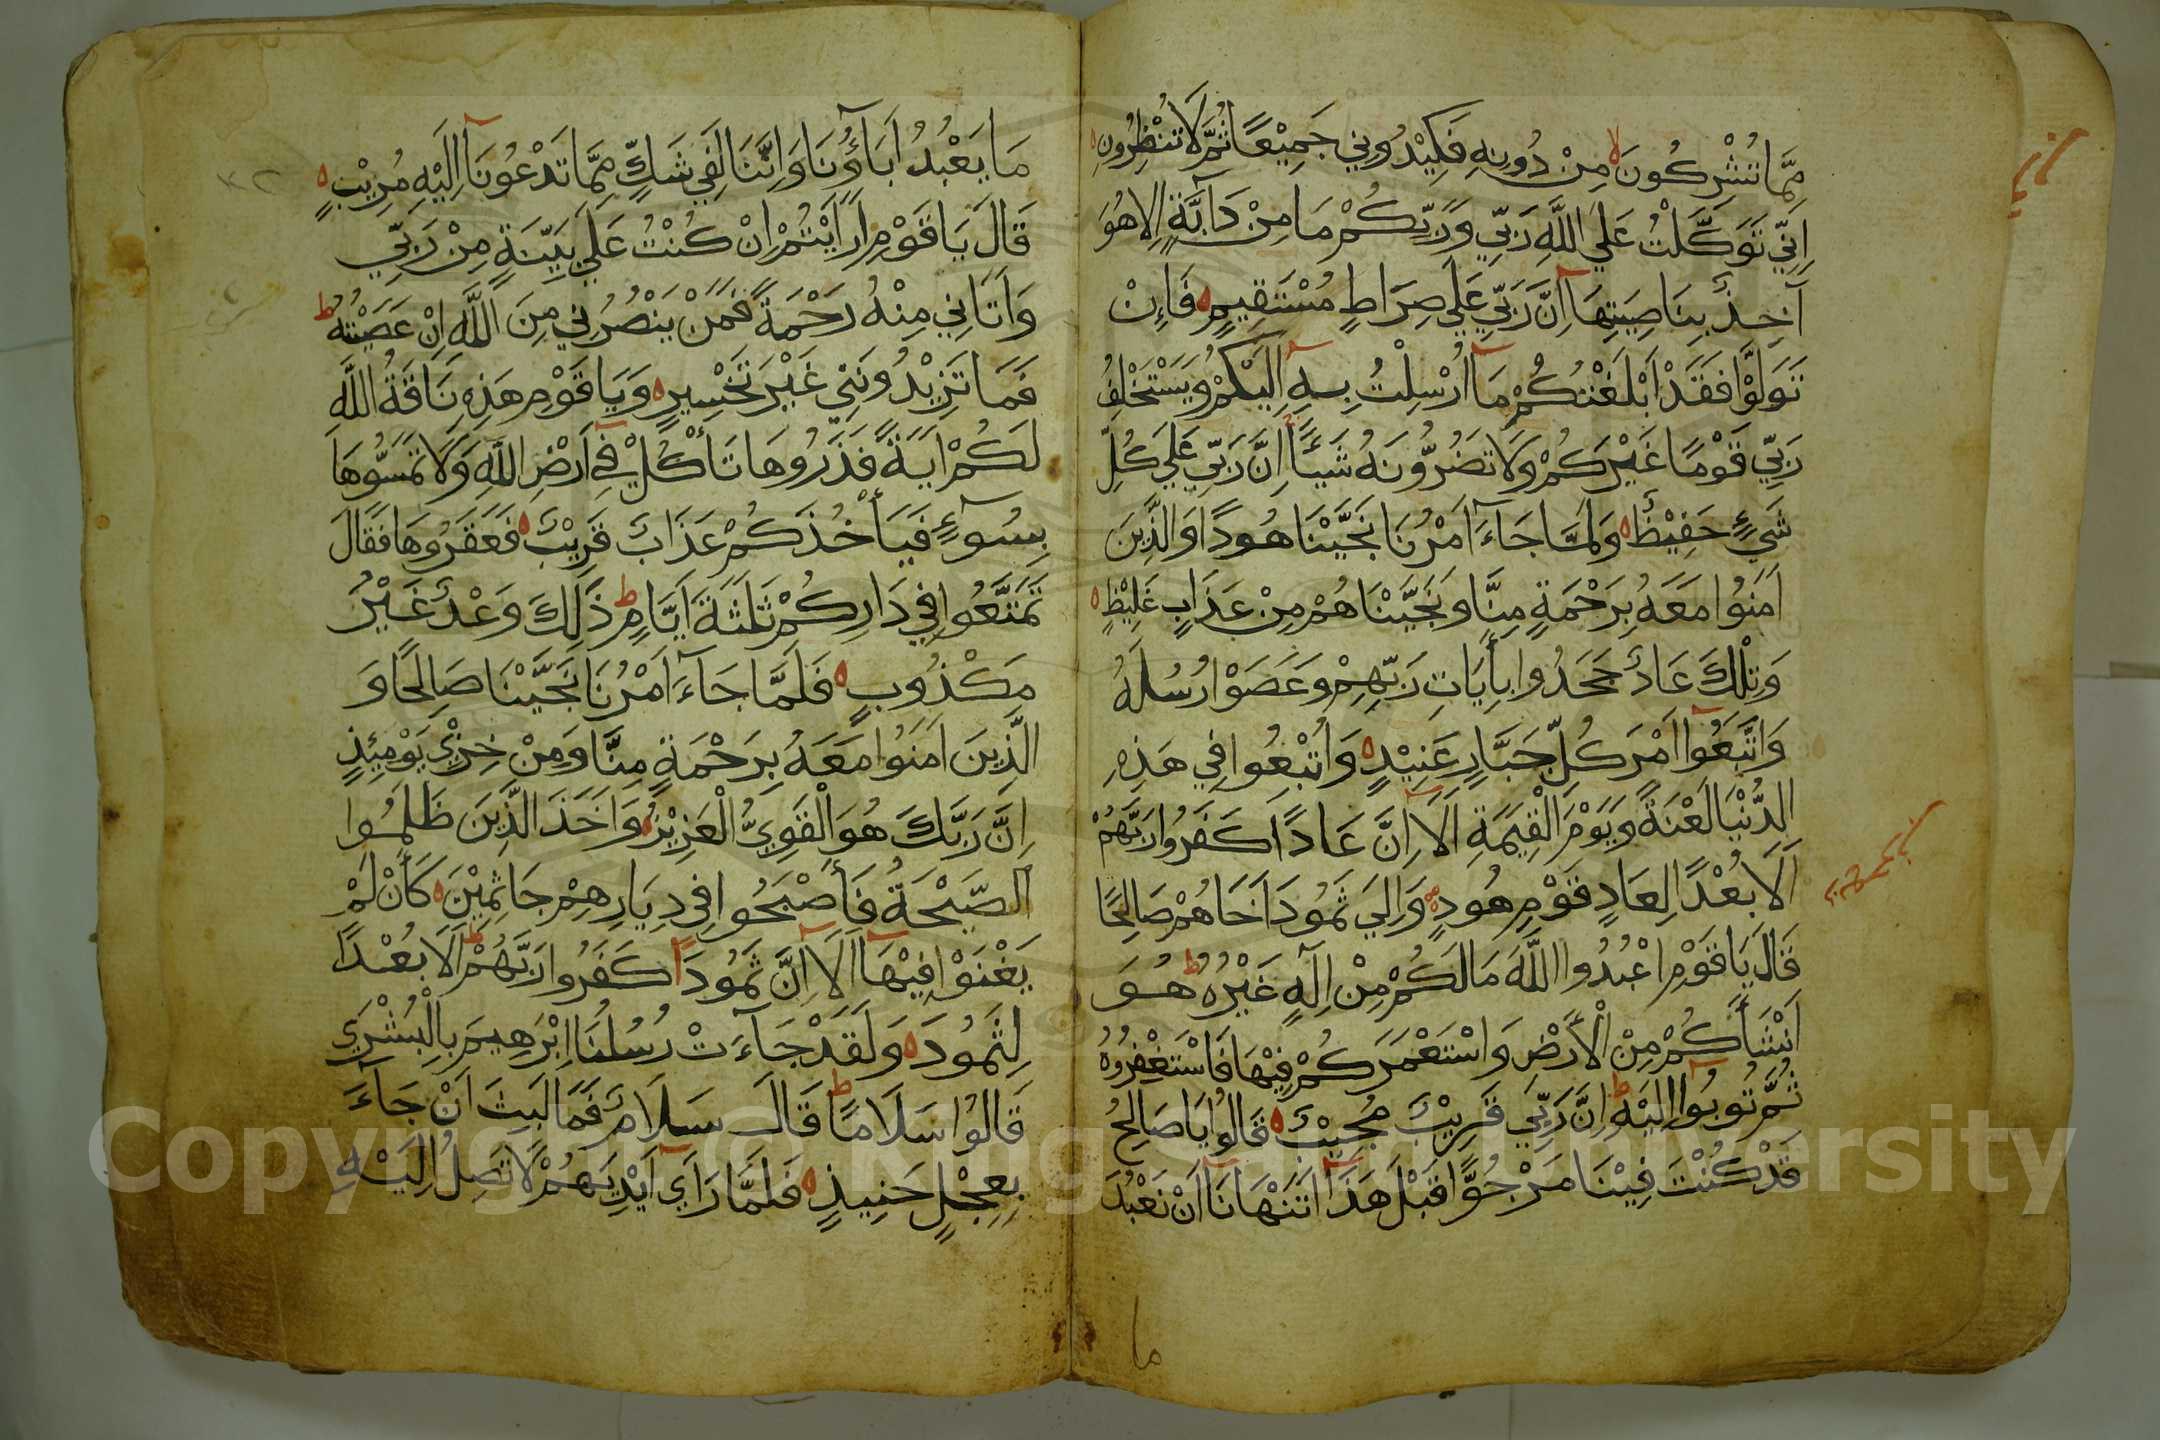 مِمَّا تُشْرِكُونَ مِنْ دُونِهِ فَكِيْدُونِي جَمِيْعًا ثُمَّ لَا تُنْظِرُونِ
اِنِّي تَوَكَّلْتُ عَلَي اللَّهِ رَبِّي وَرَبِّكُمْ مَا مِنْ دَآبَّةٍ اِلَّا هُوَ
آخِذٌ بِنَاصِيَتِهَا اِنَّ رَبِّي عَلَي صِرَاطٍ مُسْتَقِيمٍ فَاِنْ
تَوَلَّوْا فَقَدْ اَبْلَغْتُكُمْ مَا اُرْسِلْتُ بِهِ اِلَيْكُمْ وَيَسْتَخْلِفُ
رَبِّي قَوْمًا غَيْرَكُمْ وَلَا تَضُرُّونَهُ شَيْئًا اِنَّ رَبِّي عَلَي كُلِّ
شَيْءٍ حَفِيْظٌ وَلَمَّا جَآءَ اَمْرُنَا نَجَّيْنَا هُودًا وَالَّذِينَ
اٰمَنُوا مَعَهُ بِرَحْمَةٍ مِنَّا وَنَجَّيْنَاهُمْ مِنْ عَذَابٍ غَلِيْظٍ
وَتِلْكَ عَادٌ جَحَدُوا بِأَيَاتِ رَبِّهِمْ وَعَصَوْا رُسُلَهُ
وَاتَّبَعُوا اَمْرَ كُلِّ جَبَّارٍ عَنِيْدٍ وَاُتْبِعُوا فِي هَذِهِ
الدُّنْيَا لَعْنَةً وَيَوْمَ الْقِيمَةِ اَلَا اِنَّ عَادًا كَفَرُوا رَبَّهُمْ
اَلَا بُعْدًا لِعَادٍ قَوْمِ هُودٍ وَاِلَي ثَمُودَ اَخَاهُمْ صَالِحًا
قَالَ يَا قَوْمِ اعْبُدُوا اللَّهَ مَا لَكُمْ مِنْ اِلَهٍ غَيْرُهُ هُوَ
اَنْشَأَكُمْ مِنْ الْأَرْضِ وَاسْتَعْمَرَكُمْ فِيْهَا فَاسْتَغْفِرُوهُ
ثُمَّ تُوبُوا اِلَيْهِ اِنَّ رَبِّي قَرِيْبٌ مُجِيْبٌ قَالُوا يَا صَالِحُ
قَدْ كُنْتَ فِيْنَا مَرْجُوًّا قَبْلَ هَذَا اَتَنْهَانَا اَنْ نَعْبُدَ
ما
مَا يَعْبُدُ اٰبَآؤُنَا وَاِنَّنَا لَفِي شَكٍّ مِمَّا تَدْعُونَا اِلَيْهِ مُرِيْبٍ
قَالَ يَا قَوْمِ اَرَاَيْتُمْ اِنْ كُنْتُ عَلَي بَيِّنَةٍ مِنْ رَبِّي
وَاٰتَانِي مِنْهُ رَحْمَةً فَمَنْ يَنْصُرُنِي مِنَ اللَّهِ اِنْ عَصَيْتُهُ
فَمَا تَزِيْدُونَنِي غَيْرَ تَخْسِيرٍ وَيَا قَوْمِ هَذِهِ نَاقَةُ اللَّهِ
لَكُمْ اٰيَةً فَذَرُوهَا تَأْكُلْ فِي اَرْضِ اللَّهِ وَلَا تَمَسُّوهَا
بِسُوٓءٍ فَيَأْخُذَكُمْ عَذَابٌ قَرِيْبٌ فَعَقَرُوهَا فَقَالَ
تَمَتَّعُوا فِي دَارِكُمْ ثَلٰثَةَ اَيَّامٍ ذَلِكَ وَعْدٌ غَيْرُ
مَكْذُوبٍ فَلَمَّا جَآءَ اَمْرُنَا نَجَّيْنَا صَالِحًا وَ
الَّذِينَ اٰمَنُوا مَعَهُ بِرَحْمَةٍ مِنَّا وَمِنْ خِزْيِ يَوْمِئِذٍ
اِنَّ رَبَّكَ هُوَ الْقَوِيُّ الْعَزِيْزُ وَاَخَذَ الَّذِينَ ظَلَمُوا
الصَّيْحَةُ فَأَصْبَحُوا فِي دِيَارِهِمْ جَاثِمِيْنَ كَأَنْ لَمْ
يَغْنَوْا فِيْهَا اَلَا اِنَّ ثَمُودَا كَفَرُوا رَبَّهُمْ اَلَا بُعْدًا
لِثَمُودَ وَلَقَدْ جَآءَتْ رُسُلُنَا اِبْرٰهِيمَ بِالْبُشْرَي
قَالُوا سَلَامًا قَالَ سَلَامٌ فَمَا لَبِثَ اَنْ جَآءَ
بِعِجْلٍ حَنِيذٍ فَلَمَّا رَاَي اَيْدِيَهُمْ لَا تَصِلُ اِلَيْهِ
Copyright © King Saud University